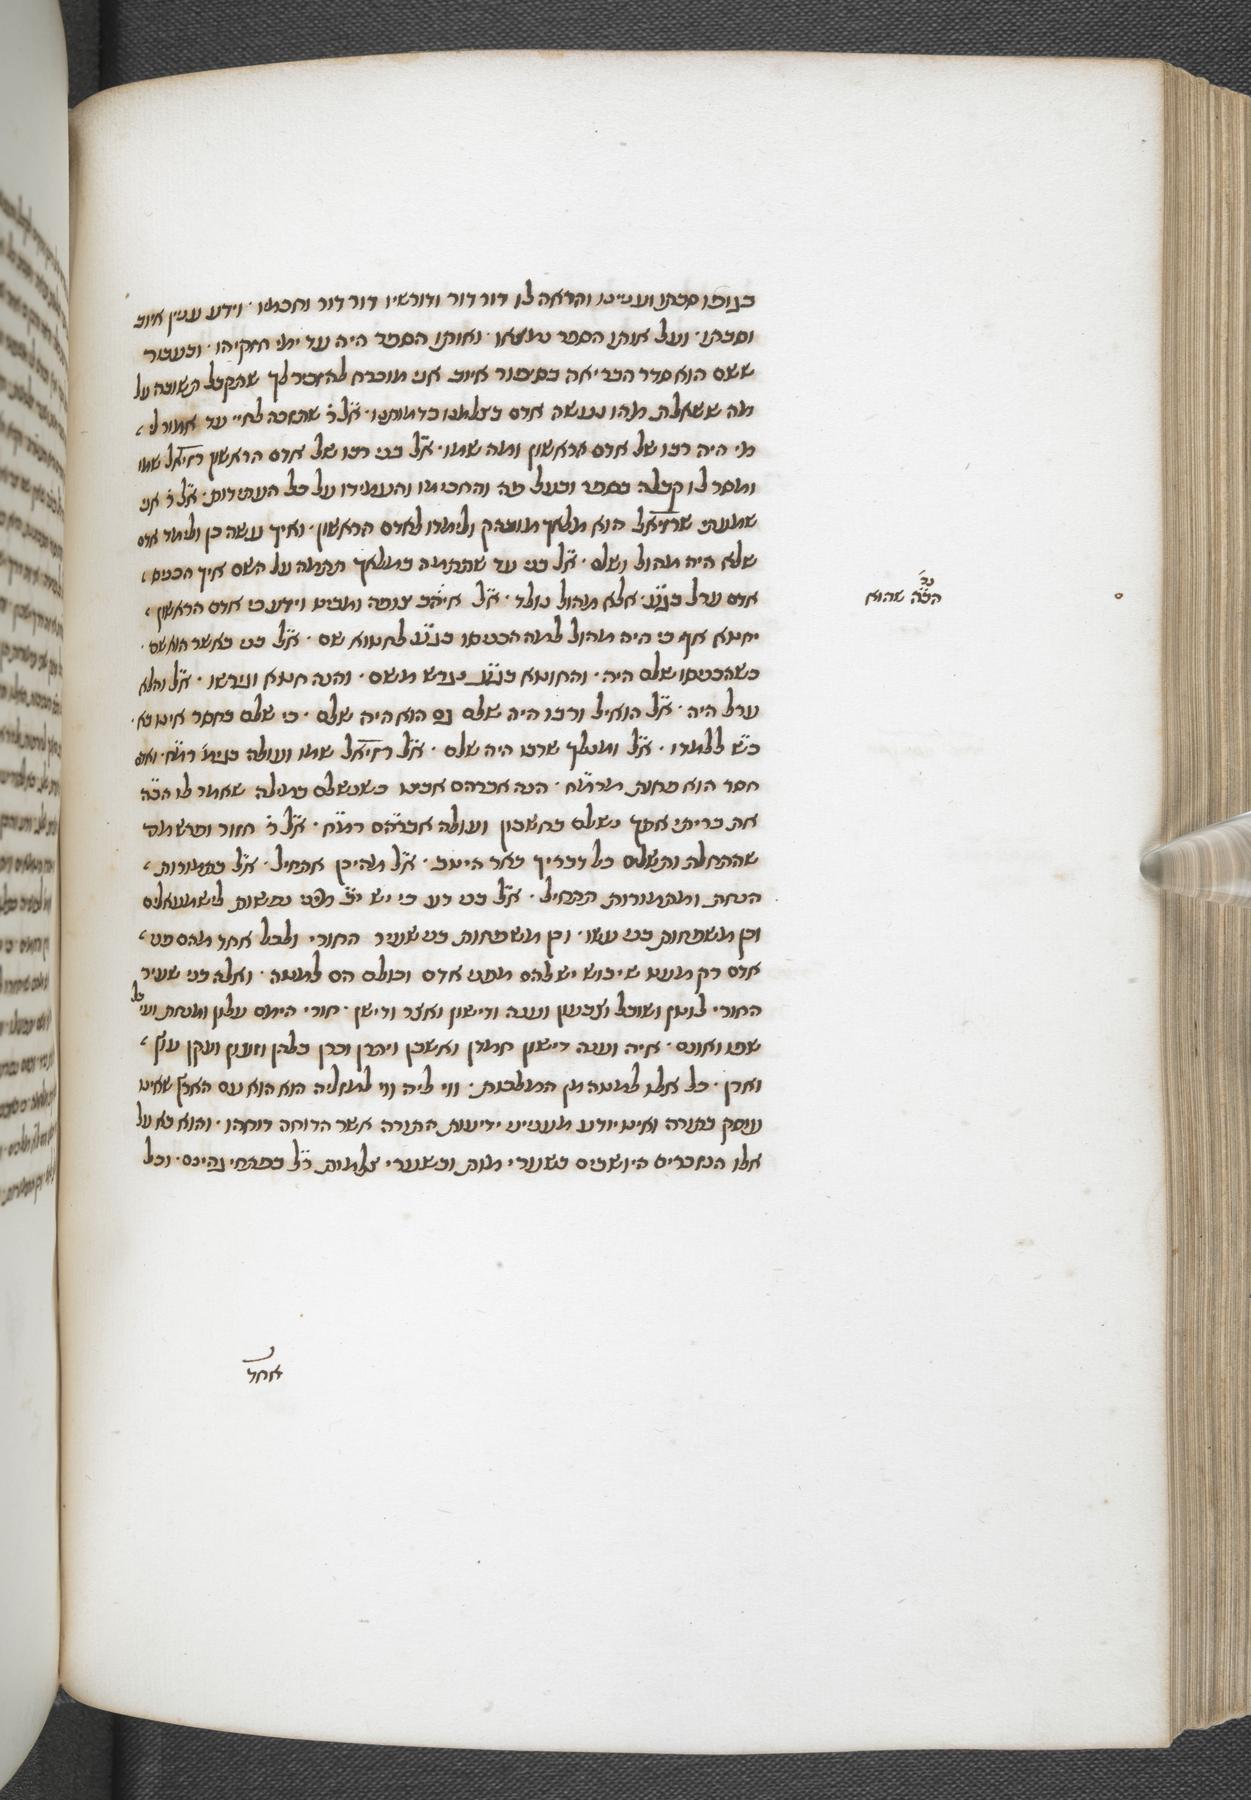 בגופו סבתו ועניינו והראה לו דור דור ודורשיו דור דור וחכמיו · וידע עניין איוב
וסבתו · ועל אותו הספר נמצאו · ואותו הספר היה עד ימי חזקיהו · ובעבור
ששם הוא סדר הבריאה בסיפור איוב אני מוכרח להזכיר לך שתקבל תשובה על
מה ששאלת מהו נעשה אדם בצלמנו כדמותנו · א״ל ר׳ שתזכה לחיי עד אמור לי
מי היה רבו של אדם הראשון ומה שמו · א״ל בני רבו של אדם הראשון רזיאל שמו
ומסר לו קבלה בספר ובעל פה והחכימו והעמידו על כל העתידות · א״ל ר׳ אני
שמעתי שרזיאל הוא מלאך מובהק ולימדו לאדם הראשון · ואיך עשה כן ולימד אדם
שלא היה מהול ושלם · א״ל בני עד שתתמה במלאך תתמה על השם איך הכניס
אדם ערל בג״ע · אלא מהול נולד · א״ל צופה ומביט וידע כי אדם הראשון
יחטא אף כי היה מהול למה הכניסו בג״ע לחטוא שם · א״ל בני כאשר הוא שם
כשהכניסו שלם היה · והחוטא בג״ע יגרש משם · והנה חטא וגורשו · א״ל והלא
ערל היה · א״ל הואיל ורבו היה שלם גם הוא היה שלם · כי שלם בחסר אינו בא
כ״ש ללמדו · א״ל ומנלך שרבו היה שלם · א״ל רזיאל שמו ועולה בגימ׳ רמ״ח · ואם
חסר הוא פחות מרמ״ח · הנה אברהם אבינו כשנשלם במילה שאמר לו הב״ה
את בריתי אתך נשלם בחשבון ועולה אברהם רמ״ח · א״ל ר׳ חזור ופרש מה
שהתחלת ותשלם כל דבריך באר היטב · א״ל מהיכן אתחיל · א״ל בתמורות
הנחת ומהתמורות תתחיל · א״ל בני דע כי יש י״ב מפני נפשות לישמעאלים
וכן משפחות בני עשו · וכן משפחות בני שעיר החורי ולכל אחד מהם פני
אדם רק מעט שיבוש יש להם מפני אדם וכולם הם למטה · ואלה בני שעיר
החורי לוטן ושובל וצבעון וענה ודישון ואצר ודישן · חורי הימם עלון ומנחת ועיבל
שפו ואונם · איה וענה דישון חמדן ואשבן ויתרן וכרן בלהן וזעון ועקן עוץ
וארן · כל אלו למטה מן המלכות · ווי ליה ווי למזליה הוא הוא עם הארץ שאינו
עוסק בתורה ואינו יודע מענייני ידיעות התורה אשר הדוחה דוחהו · והוא בא על
אלו הנזכרים היושבים בשערי מות ובשערי צלמות ר״ל בפתחי גהינם · וכל
אחד
הב״ה שהוא